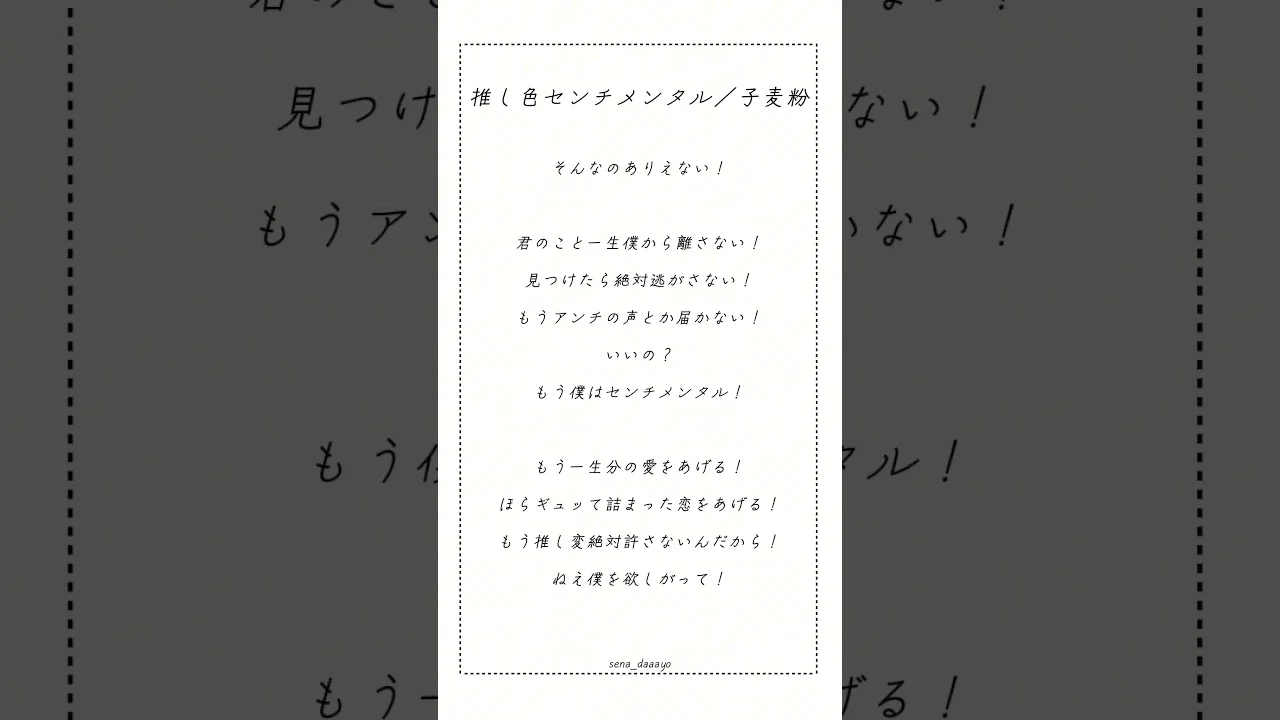 推し色センチメンタル／子麦粉
そんなのありえない！
君のこと一生僕から離さない！
見つけたら絶対逃がさない！
もうアンチの声とか届かない！
いいの？
もう僕はセンチメンタル！
もう一生分の愛をあげる！
ほらギュッて詰まった恋をあげる！
もう推し変絶対許さないんだから！
ねえ僕を欲しがって！
sena_daaayo